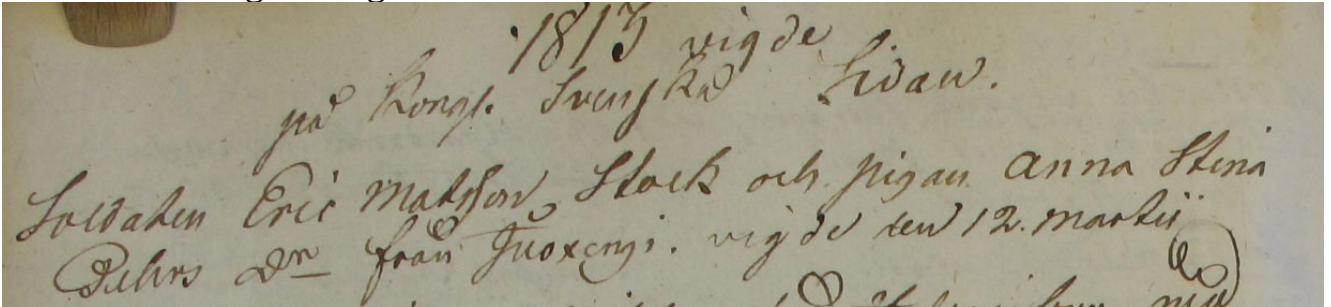 1813 vigde
på Kongl. Svenska Sidan.
Soldaten Eric Matsson Stock och pigan Anna Stina
Pehrs Dn från vigde den 12. Martii